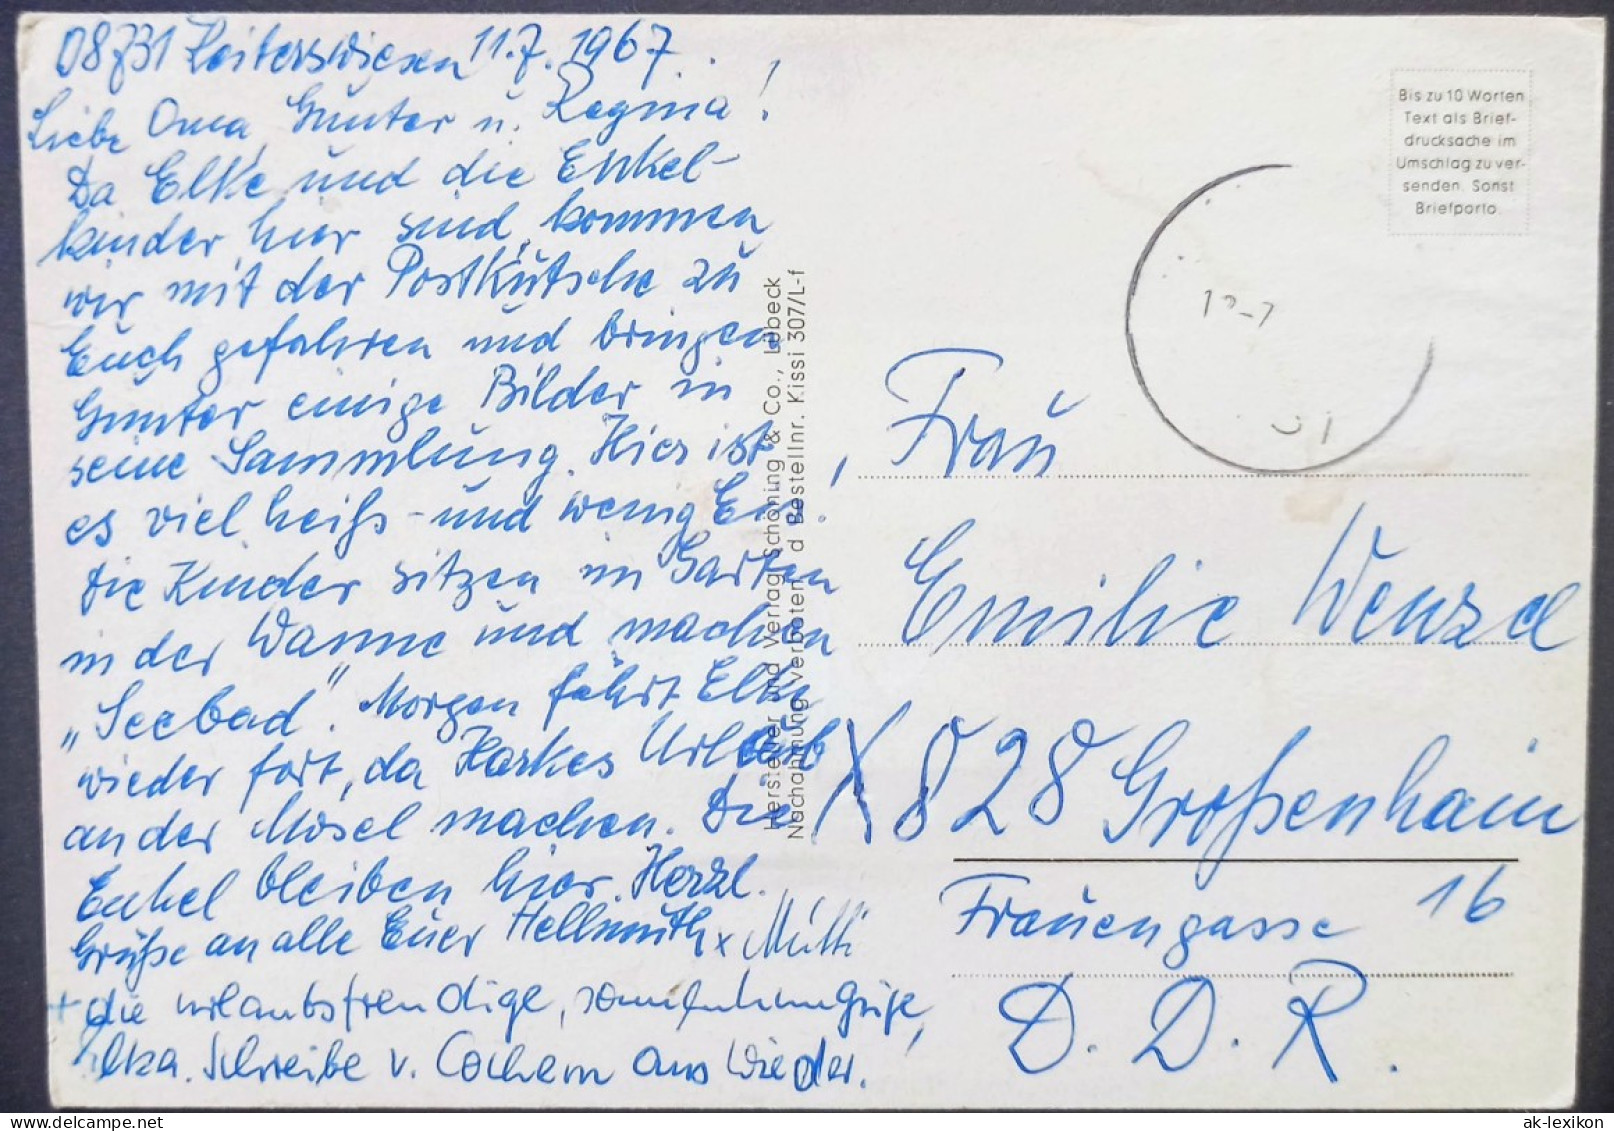 D8731 Reiterswiesen 11.7.1967.
Liebe Oma, Gunter u. Regina!
Da Elke und die Enkel-
kinder hier sind, kommen
wir mit der Postkutsche zu
Euch gefahren und bringen
Gunter einige Bilder in
seine Sammlung. Hier ist
es viel heiß - und wenig Eis!
Die Kinder sitzen im Garten
in der Wanne und machen
„Seebad". Morgen fährt Elke
wieder fort, da Harkes Urlaub
an der Mosel machen. Die
Enkel bleiben hier. Herzl.
Grüße an alle Euer Hellmuth x Mutti
+ die urlaubsfreudige,
Elka. Schreibe v. Cochem aus wieder.
Hersteller und Verlag Schöning & Co., Lübeck
Nachahmung verboten d Bestellnr. Kissi 307/L-f
Bis zu 10 Worten
Text als Brief-
drucksache im
Umschlag zu ver-
senden. Sonst
Briefporto.
Frau
Emilie Wenzel
X 828 Großenhain
Frauengasse 16
D. D. R.
www.delcampe.net
ak-lexikon